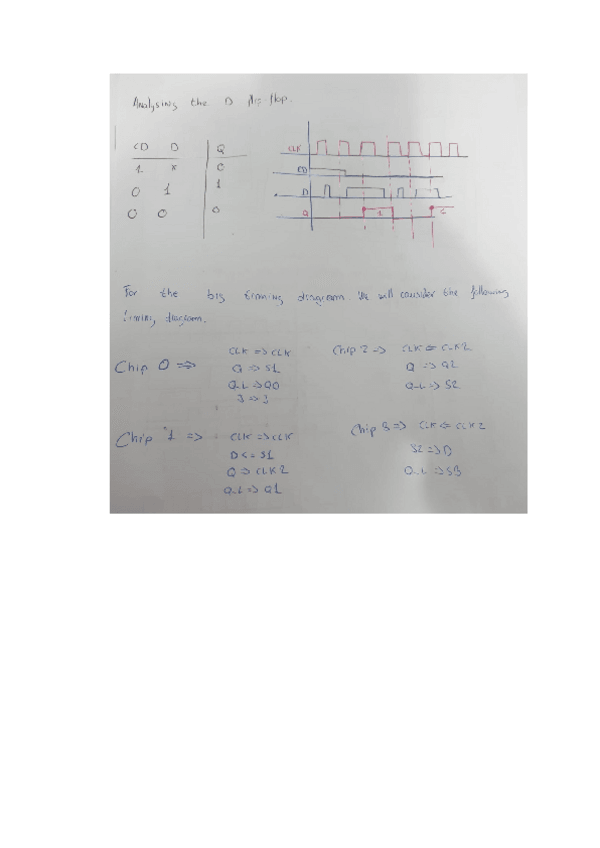 Analysing the D flip flop.
CD D Q
1 x 0
0 1 1
0 0 0
CLK
CD
D
Q 1
For the big timming diagram. We will consider the following
timing diagram.
Chip 0 => CLK => CLK
Q => S1
Q_L => Q0
J => J
Chip 1 => CLK => CLK
D <= S1
Q => CLK2
Q_L => Q1
Chip 2 => CLK <= CLK2
Q => Q2
Q_L => S2
Chip 3 => CLK <= CLK2
S2 => D
Q_L => S3